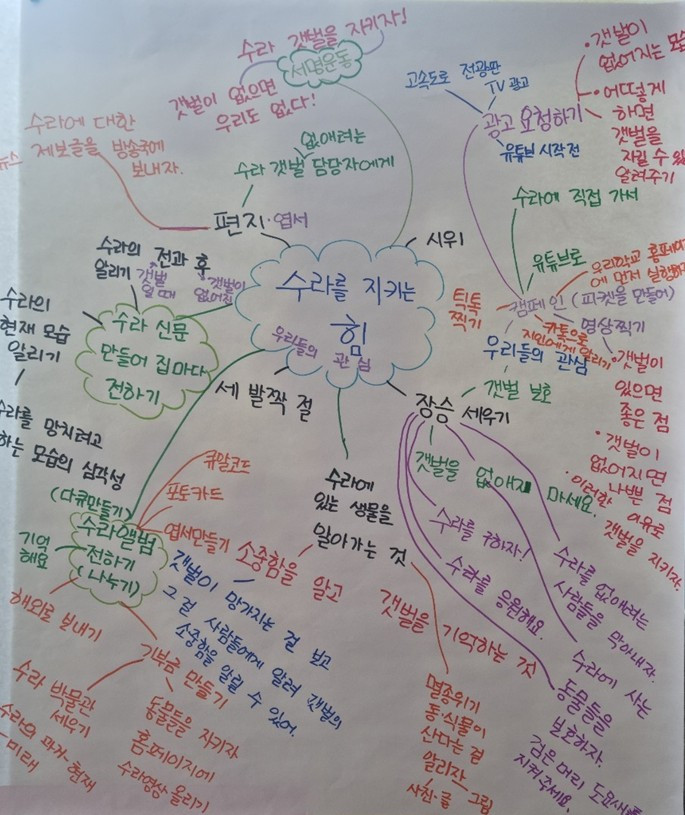 수라 갯벌을 지키자!
서명운동
갯벌이 없으면
우리도 없다!
수라에 대한
제보글을 방송국에
보내자.
뉴스
없애려는
수라 갯벌 담당자에게
편지·엽서
시위!
고속도로 전광판
TV 광고
광고 요청하기
유튜브 시작 전
•갯벌이
없어지는 모습
•어떻게
하면
갯벌을
지킬 수 있
알려주기
수라에 직접 가서
유튜브로
우리학교 홈페이지
에 먼저 실행하기
캠페인 (피켓을 만들어)
틱톡
찍기
카톡으로
지인에게 알리기
영상찍기
우리들의 관심
•갯벌이
있으면
좋은 점
•갯벌이
없어지면
나쁜 점
•이러한 이유로
갯벌을 지키자.
수라를 지키는
힘
우리들의 관심
수라의 전과 후
알리기
갯벌
일 때
갯벌이
없어짐
수라 신문
만들어 집마다
전하기
수라의
현재 모습
알리기
수라를 망치려고
하는 모습의 심각성
(다큐만들기)
세 발짝 절
갯벌 보호
장승 세우기
갯벌을 없애지 마세요.
수라를 구하자!
수라를 응원해요.
수라를 없애려는
사람들을 막아내자.
수라에 사는
동물들을
보호하자.
검은머리 도요새를
지켜주세요.
수라에
있는 생물을
알아가는 것
소중함을 알고
갯벌을 기억하는 것
멸종위기
동·식물이
산다는 걸
알리자
그림
사진·글
큐알코드
포토카드
엽서만들기
수라앨범
전하기
(나누기)
기억
해요
해외로 보내기
갯벌이 망가지는 걸 보고
그걸 사람들에게 알려 갯벌의
소중함을 알릴 수 있어.
기부금 만들기
수라 박물관
세우기
수라의 과거-현재
-미래
동물들을 지키자
홈페이지에
수라영상 올리기